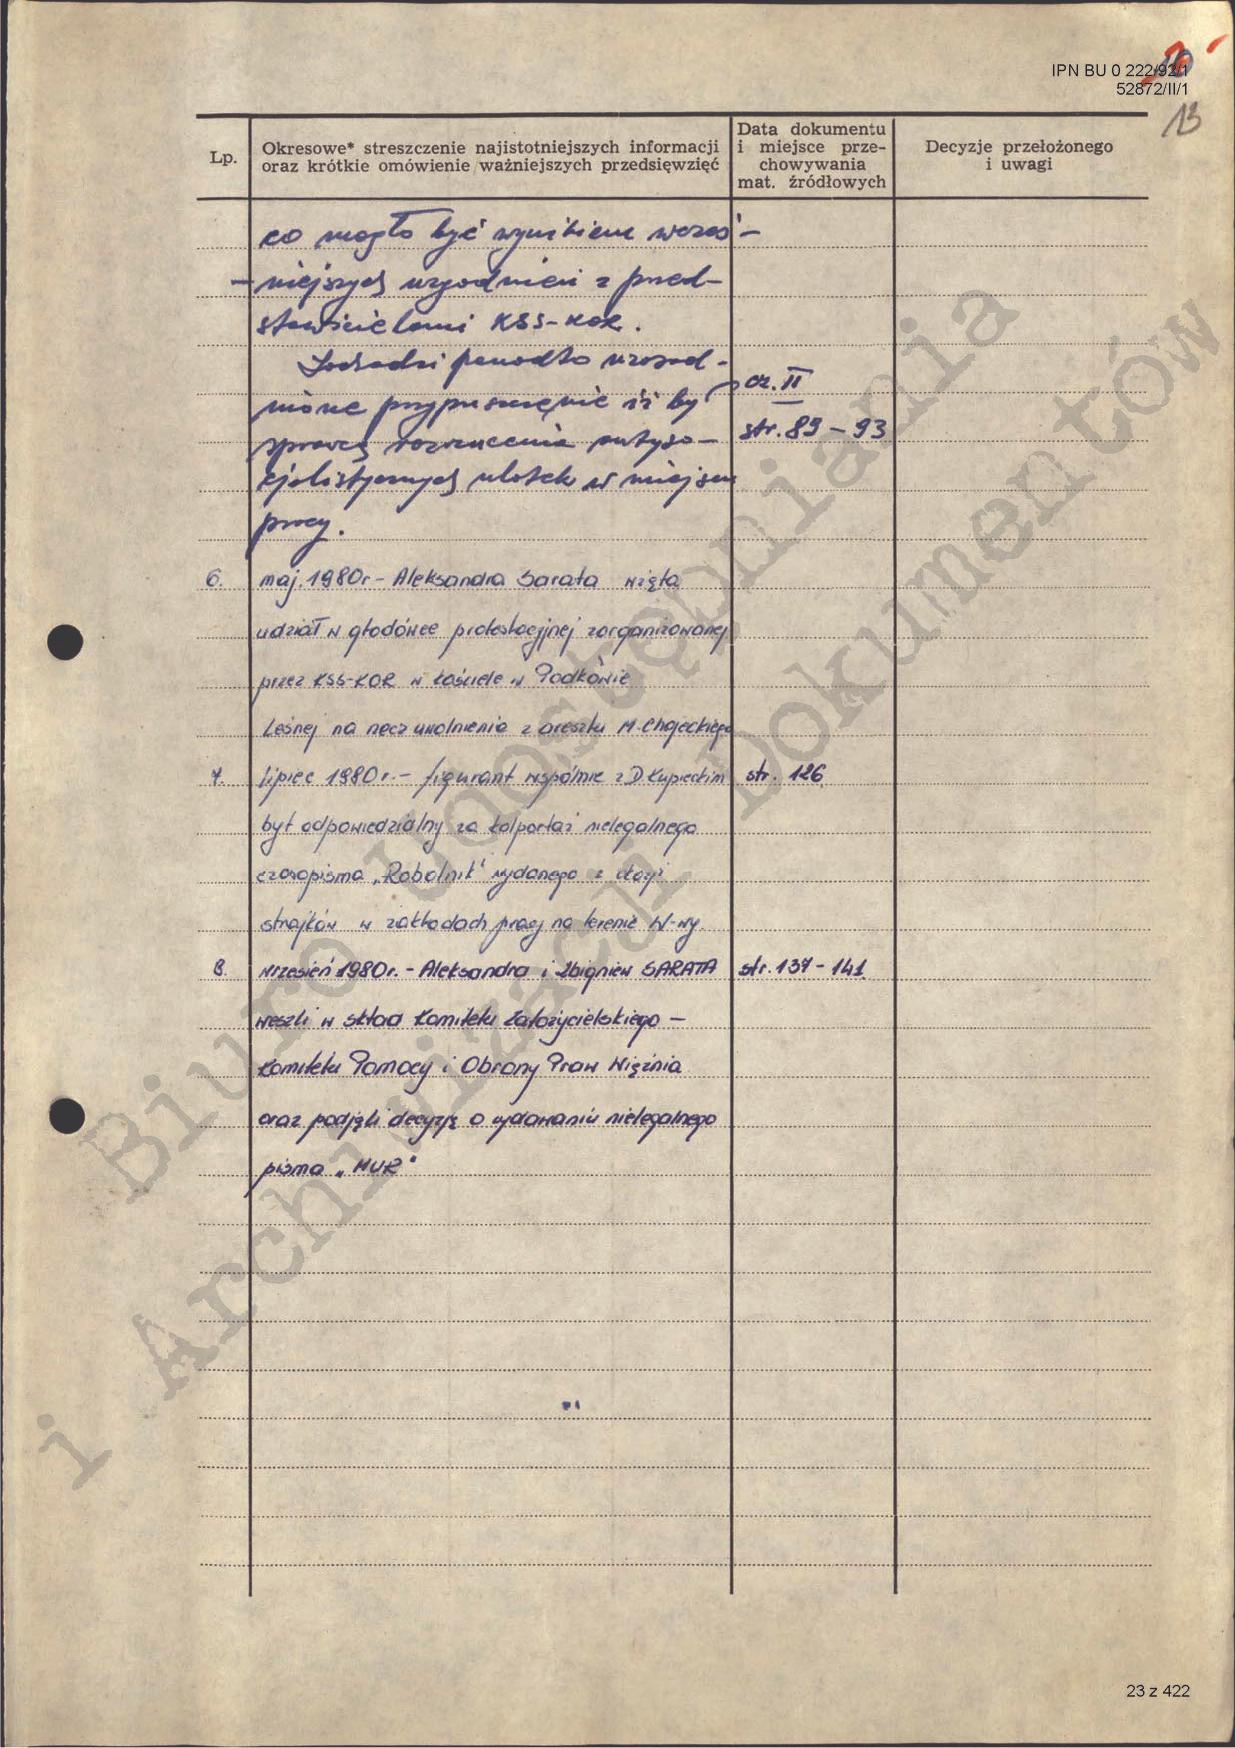 IPN BU 0 222/92/1
52872/II/1
13
Lp.
Okresowe* streszczenie najistotniejszych informacji
oraz krótkie omówienie ważniejszych przedsięwzięć
Data dokumentu
i miejsce prze-
chowywania
mat. źródłowych
Decyzje przełożonego
i uwagi
co mogło być wynikiem wcześ-
-niejszych uzgodnień z przed-
stawicielami KSS-KOR.
Zachodzi ponadto uzasad-
nione przypuszczenie iż by
cz. II
sprawcą rozrzucenia antyso-
str. 89-93
cjalistycznych ulotek w miejscu
pracy.
6. maj. 1980r - Aleksandra Sarata wzięła
udział w głodówce protestacyjnej zorganizowanej
przez KSS-KOR w kościele w Podkowie
Leśnej na rzecz uwolnienia z aresztu M. Chojeckiego
7. lipiec 1980r. - figurant wspólnie z D. Kupieckim str. 126
był odpowiedzialny za kolportaż nielegalnego
czasopisma „Robotnik" wydanego z okazji
strajków w zakładach pracy na terenie W-wy.
8. wrzesień 1980r. - Aleksandra i Zbigniew SARATA str. 137-141
weszli w skład Komitetu Założycielskiego -
Komitetu Pomocy i Obrony Praw Więźnia
oraz podjęli decyzję o wydawaniu nielegalnego
pisma „MUR"
Biuro Udostępniania
i Archiwizacji Dokumentów
23 z 422